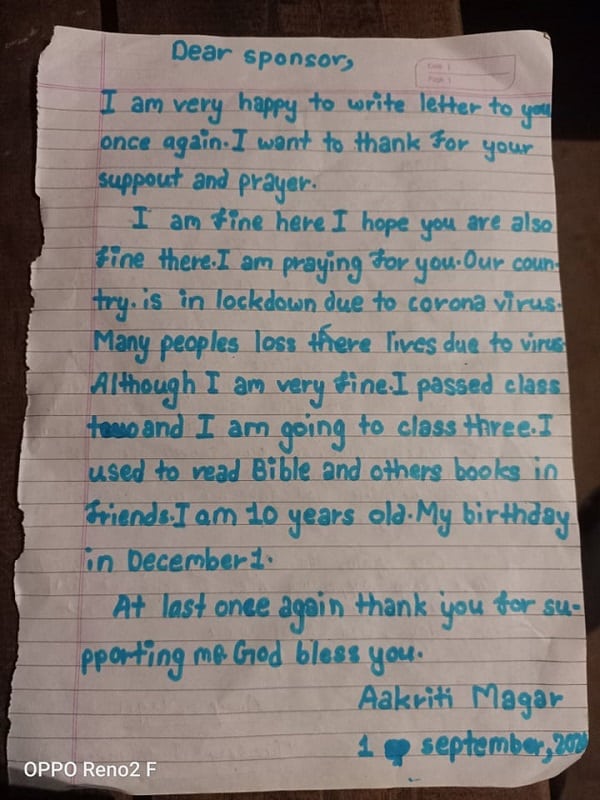 Dear sponsor,
I am very happy to write letter to you
once again. I want to thank for your
suppout and prayer.
I am fine here I hope you are also
fine there. I am praying for you. Our coun-
try. is in lockdown due to corona virus.
Many peoples loss there lives due to virus
Although I am very fine. I passed class
and I am going to class three. I
used to read Bible and others books in
friends. I am 10 years old. My birthday
in December 1.
At last once again thank you for su-
pporting me God bless you.
Aakriti Magar
1 september,
OPPO Reno2 F